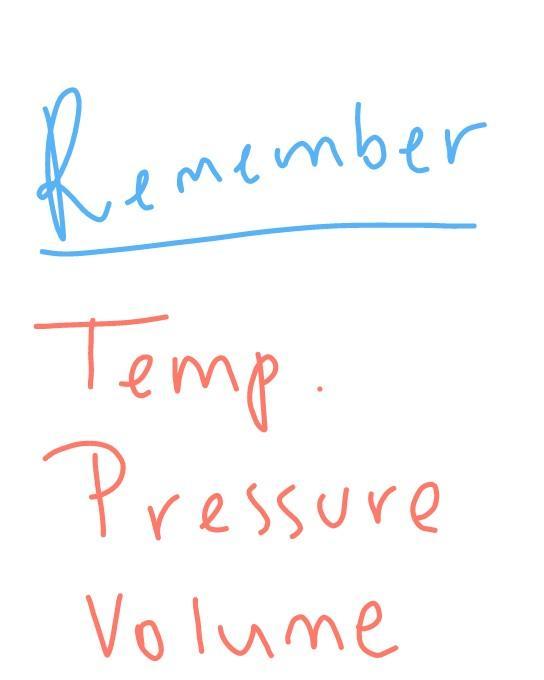 Remember
Temp.
Pressure
Volume